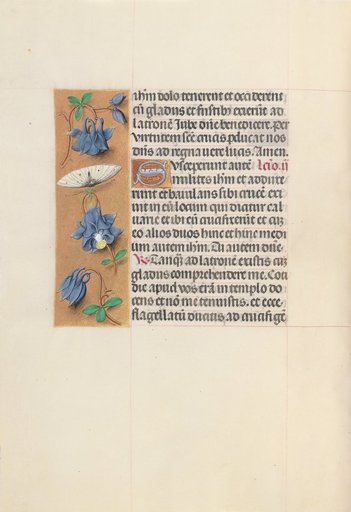 ihm dolo tenerent et occiderent
cū gladiis et fustib; exierūt ad
latronē Iube dn̄e benedicere. per
virtutem sc̄e crucis pducat nos
dn̄s ad regna vere lucis. Amen.
Susceperunt autē lcio. ii
milites ihm et adduxe
runt et baiulans sibi crucē exi
uit in eū locum qui dicitur cal
uarie et ibi eū crucifixerūt et cū
eo alios duos hinc et hinc mediū
um autem ihm. Tu autem dn̄e.
R. Tanq̄ ad latronē existis cū
gladiis comprehendere me. Coti
die apud vos erā in templo do
cens et nō me tenuistis. et ecce
flagellatū ducitis ad crucifigē